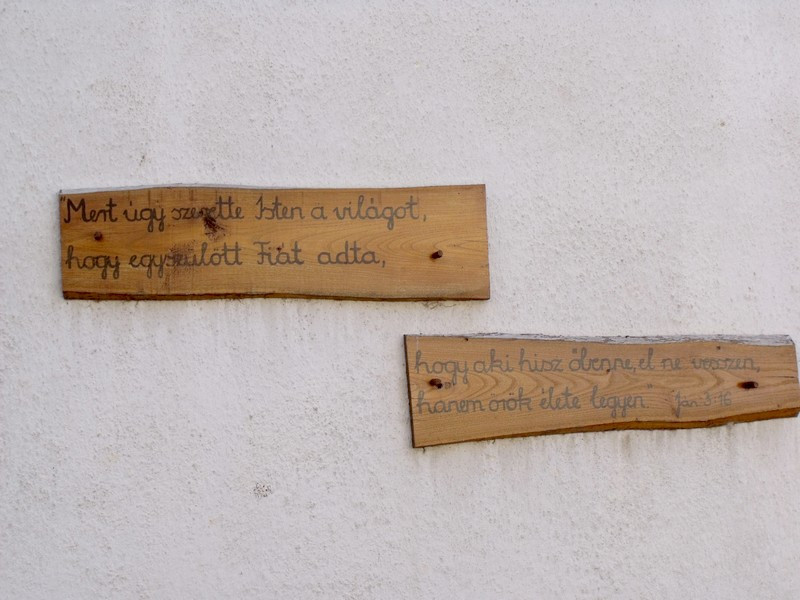 "Mert úgy szerette Isten a világot,
hogy egyszülött Fiát adta,
hogy aki hisz őbenne, el ne vesszen,
hanem örök élete legyen" Ján 3.16